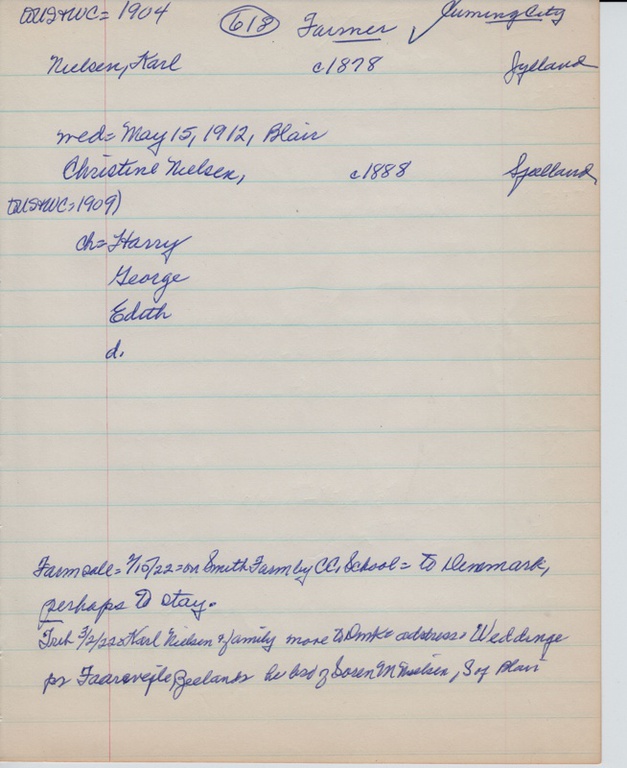 (US&WC = 1904 (618) Farmer ✓ Cuming City
Nielsen, Karl c1878 Jylland
med = May 15, 1912, Blair
Christine Nielsen, c1888 Sjælland
(US&WC = 1909)
ch = Harry
George
Edith
d.
Farm sale = /10/22 = on Smith Farm by CC. School = to Denmark,
perhaps to stay.
Trib 3/2/22 = Karl Nielsen & family move to Dmk = address = Weddinge
pr Faarevejle Zeeland = he bro of Soren M Nielsen, S of Blair